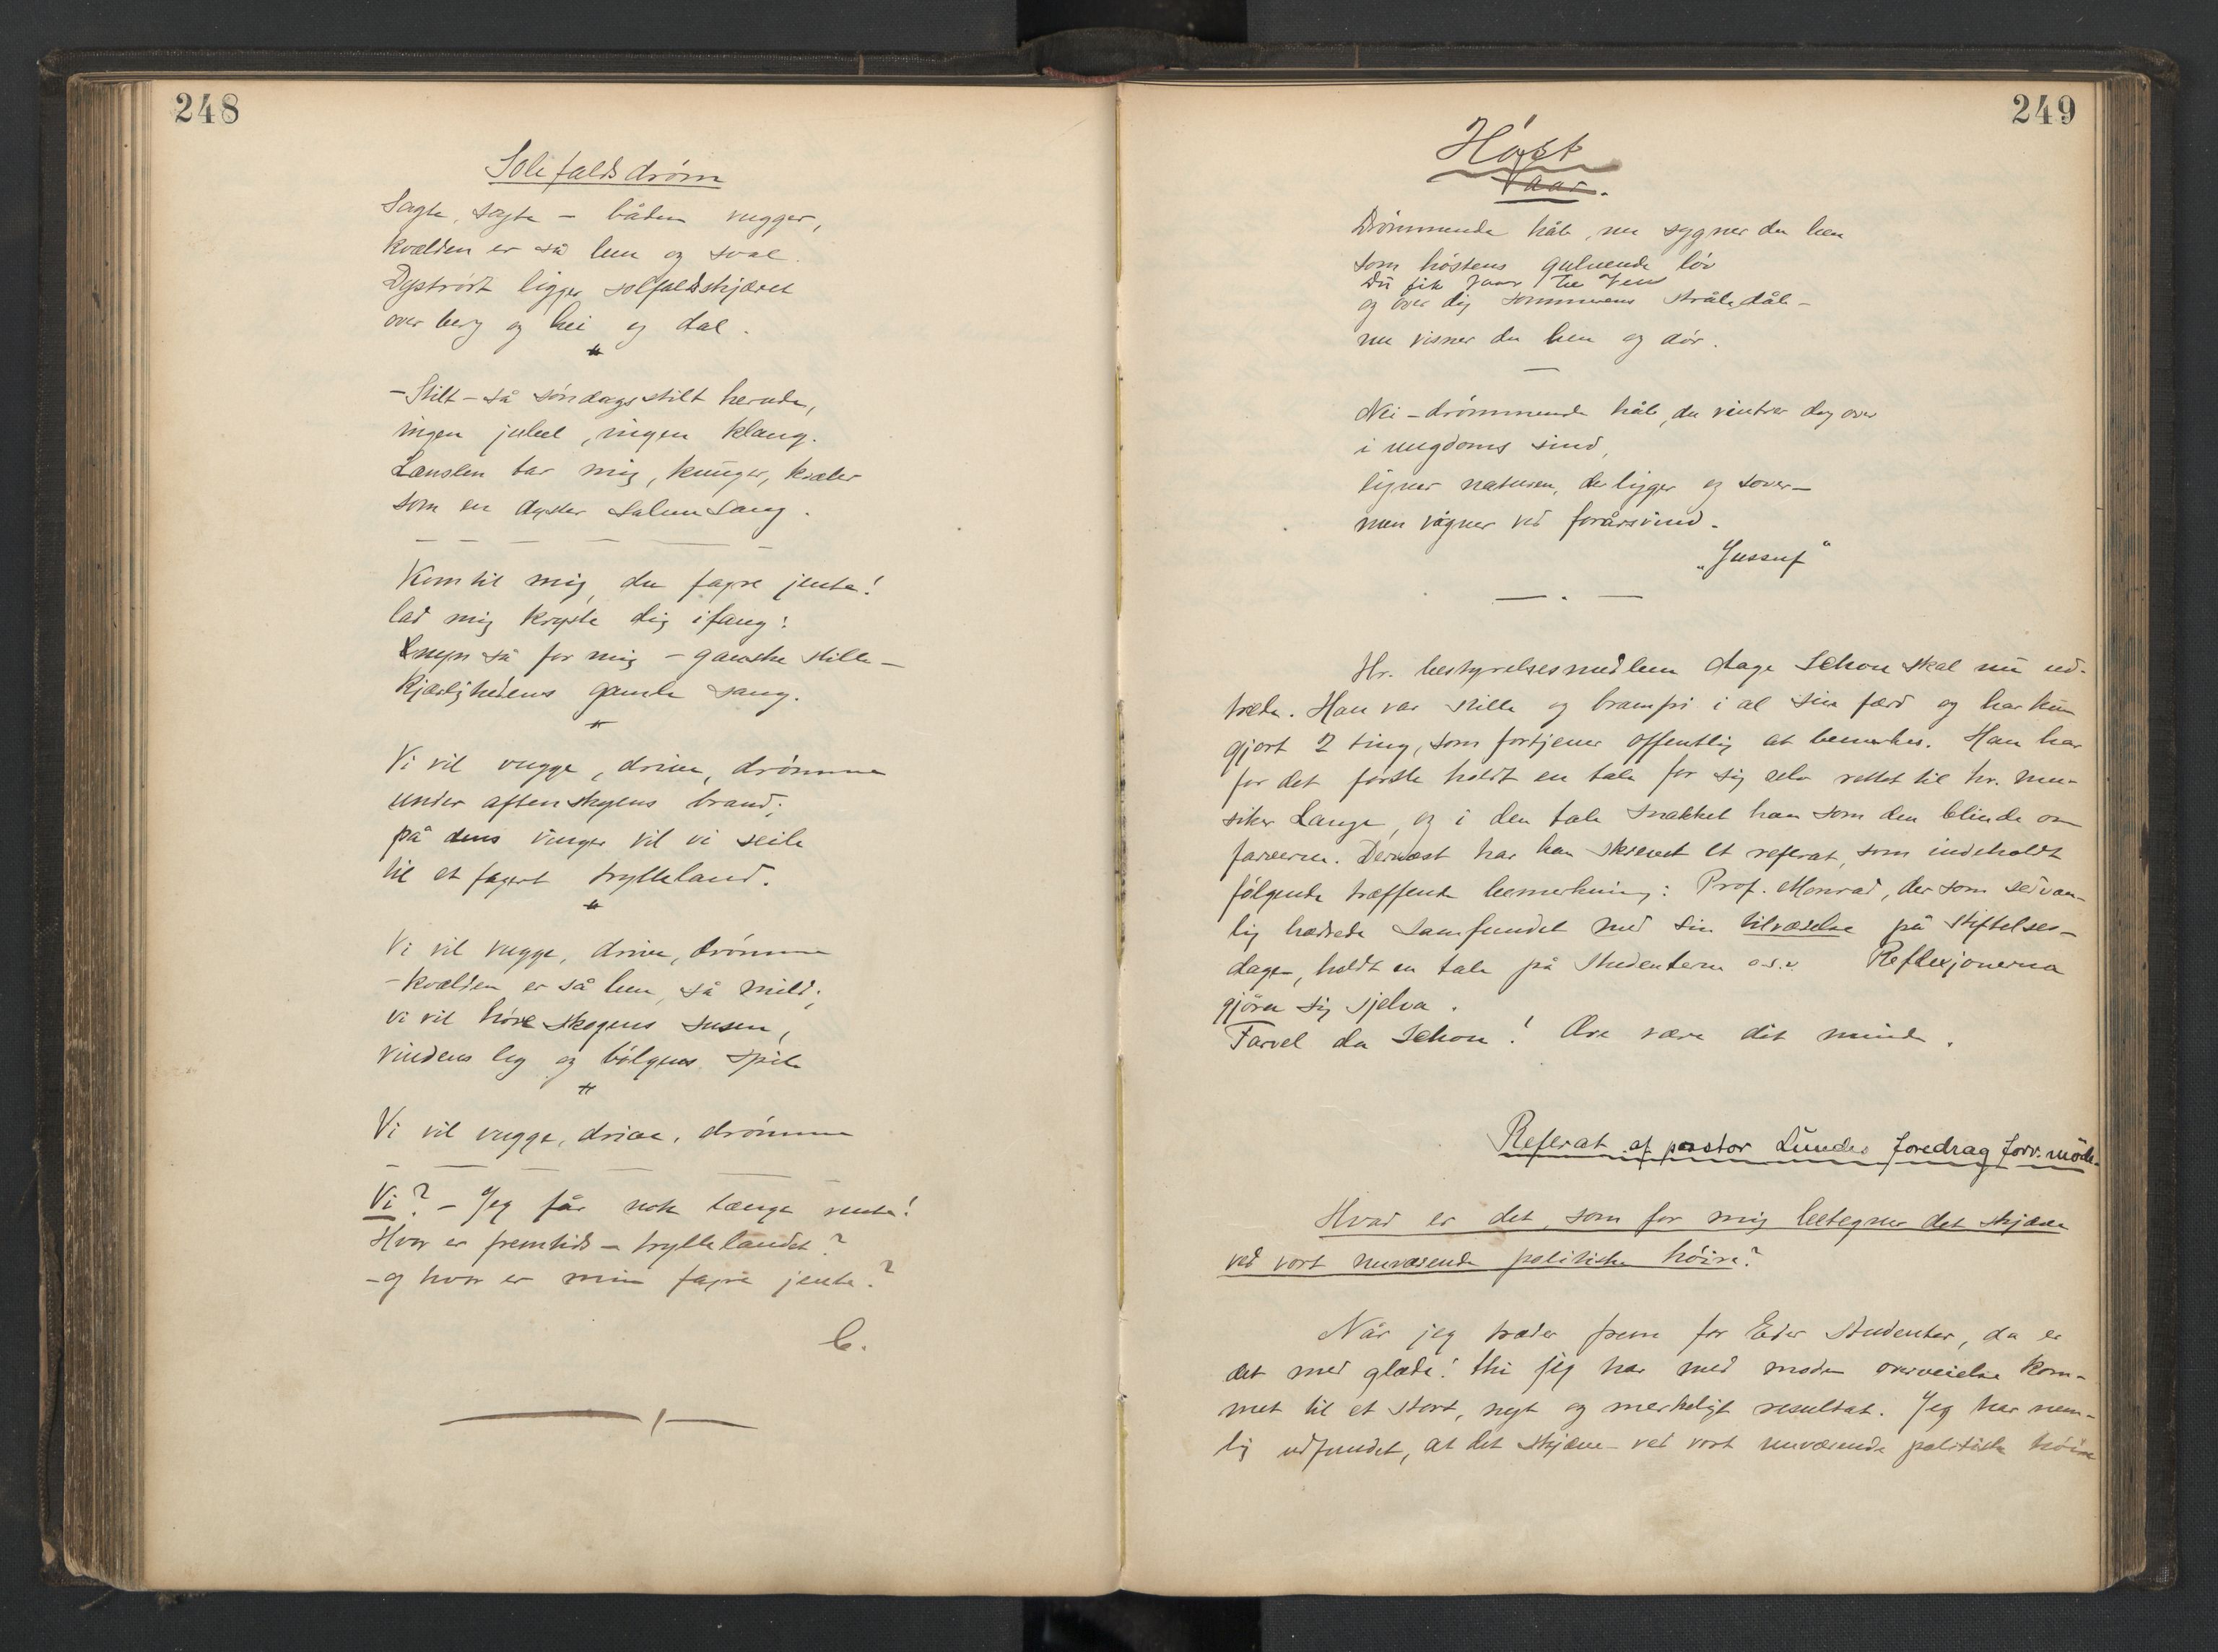 248
Solefaldsdrøm
Sagte, sagte – båden vugger,
kvælden er så lun og sval.
Dystrødt ligger solfaldsskjæret
over berg og hei og dal.
– Stilt – så søndagsstilt herude,
ingen jubel, ingen klang.
Længslen tar mig, tvinger, kvæler
som en dyster salmesang.
Kom til mig, du fagre jente!
lad mig kryste dig i fang:
Syng så for mig – ganske stille –
kjærlighedens gamle sang.
Vi vil vugge, drive, drømme
under aftenskyens brand;
på dens vinger vil vi seile
til et fagert trylleland.
Vi vil vugge, drive, drømme
– kvælden er så lun, så mild;
vi vil høre skogens susen,
vindens leg og bølgens spil
Vi vil vugge, drive, drømme
Vi? – Jeg får nok længe vente!
Hvor er fremtids–tryllelandet?
– og hvor er min fagre jente?
C.
249
Høst
Vaar.
Drømmende håb, nu sygner du hen
som høstens gulnende løv
Du fik vaar til ven
og over dig sommerens stråledåb –
nu visner du hen og dør.
Nei – drømmende håb, du vintrer dig over
i ungdoms sind,
ligner naturen, der ligger og sover –
men vågner ved forårsvind.
„Jussuf“
Hr. bestyrelsesmedlem Aage Schou skal nu ud-
træde. Han var stille og bramfri i al sin færd og har kun
gjort 2 ting, som fortjener offentlig at bemerkes. Han har
for det første holdt en tale for sig selv rettet til hr. mu-
siker Lange, og i den tale snakket han som den blinde om
farverne. Dernæst har han skrevet et referat, som indeholdt
følgende træffende bemerkning: Prof. Monrad, der som sedvan-
lig hædrede Samfundet med sin tilværelse på stiftelses-
dagen, holdt en tale på Studenterne o.s.v. Reflexjonerna
gjöra sig sjelva.
Farvel da Schou! Ære være dit minde.
Referat af pastor Lundes foredrag forr. møde.
Hvad er det, som for mig betegner det skjæve
ved vort nuværende politiske høire?
Når jeg træder frem for Eder studenter, da er
det med glæde! thi jeg har med moden overveielse kom-
met til et stort, nyt og merkeligt resultat. Jeg har nem-
lig udfundet, at det skjæve ved vort nuværende politiske høire